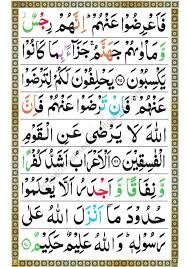 فَاَعْرِضُوْا عَنْهُمْ ؕ اِنَّهُمْ رِجْسٌ
وَّمَاْوٰىهُمْ جَهَنَّمُ ۚ جَزَآءًۢ بِمَا كَانُوْا
يَكْسِبُوْنَ ﴿۹۵﴾ يَحْلِفُوْنَ لَكُمْ لِتَرْضَوْا
عَنْهُمْ ۚ فَاِنْ تَرْضَوْا عَنْهُمْ فَاِنَّ
اللّٰهَ لَا يَرْضٰى عَنِ الْقَوْمِ
الْفٰسِقِيْنَ ﴿۹۶﴾ اَلْاَعْرَابُ اَشَدُّ كُفْرًا
وَّنِفَاقًا وَّاَجْدَرُ اَلَّا يَعْلَمُوْا
حُدُوْدَ مَاۤ اَنْزَلَ اللّٰهُ عَلٰى
رَسُوْلِهٖ ؕ وَاللّٰهُ عَلِيْمٌ حَكِيْمٌ ﴿۹۷﴾